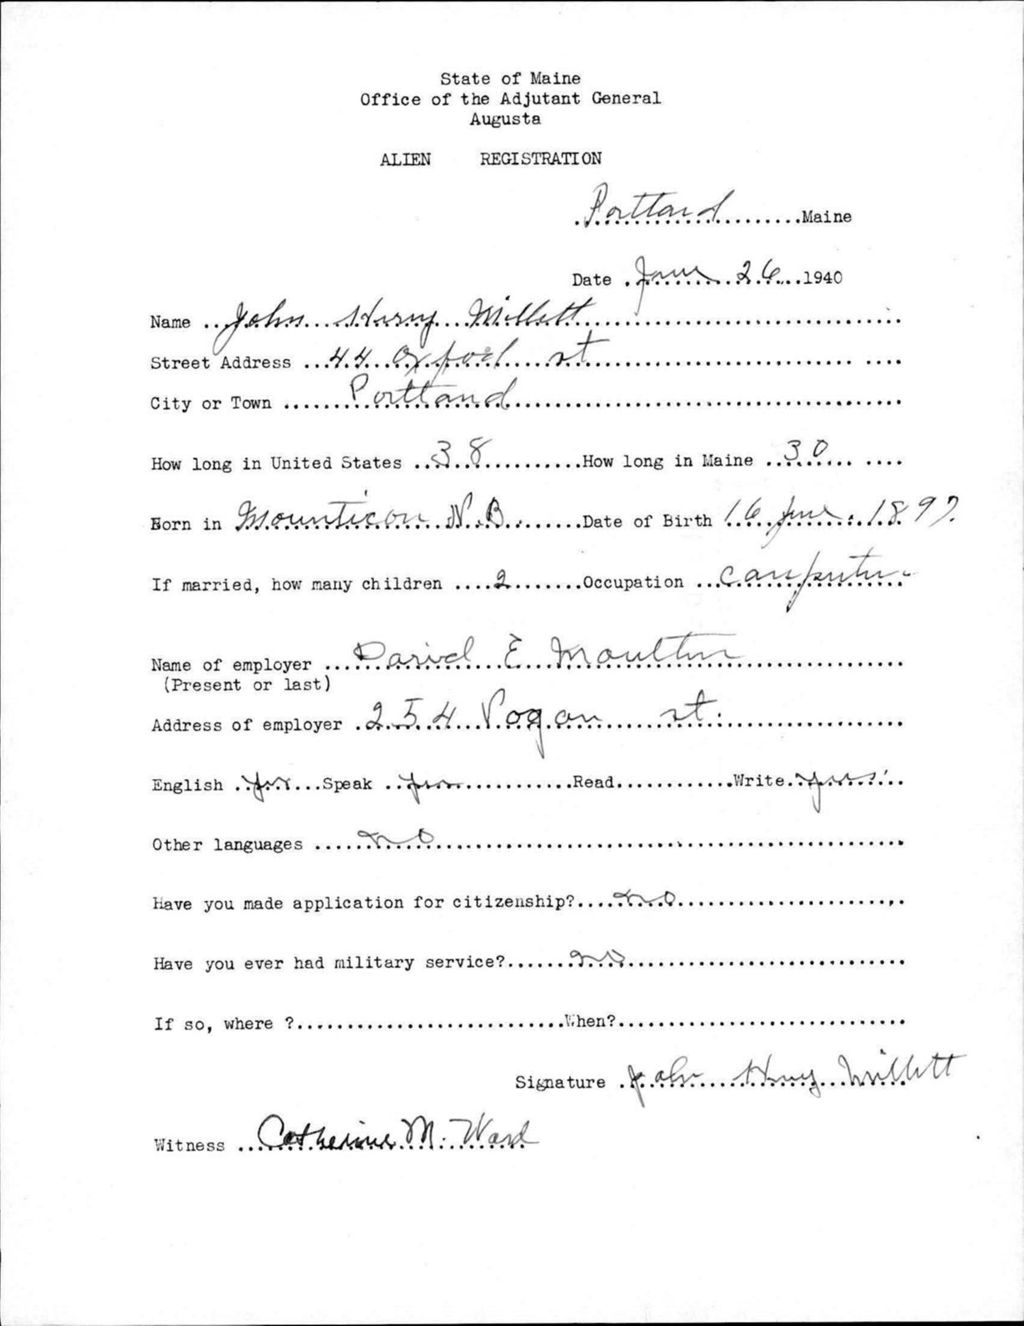 State of Maine
Office of the Adjutant General
Augusta
ALIEN REGISTRATION
Portland Maine
Date June 26 1940
Name John Henry Millett
Street Address 44 Oxford st
City or Town Portland
How long in United States 38 How long in Maine 30
Born in N.B. Date of Birth 16 June 1897
If married, how many children 2 Occupation Carpenter
Name of employer E Moulton
(Present or last)
Address of employer 254 st.
English yes Speak yes Read Write yes
Other languages no
Have you made application for citizenship? no
Have you ever had military service? no
If so, where ? When?
Signature John Henry Millett
Witness Catherine M. Ward